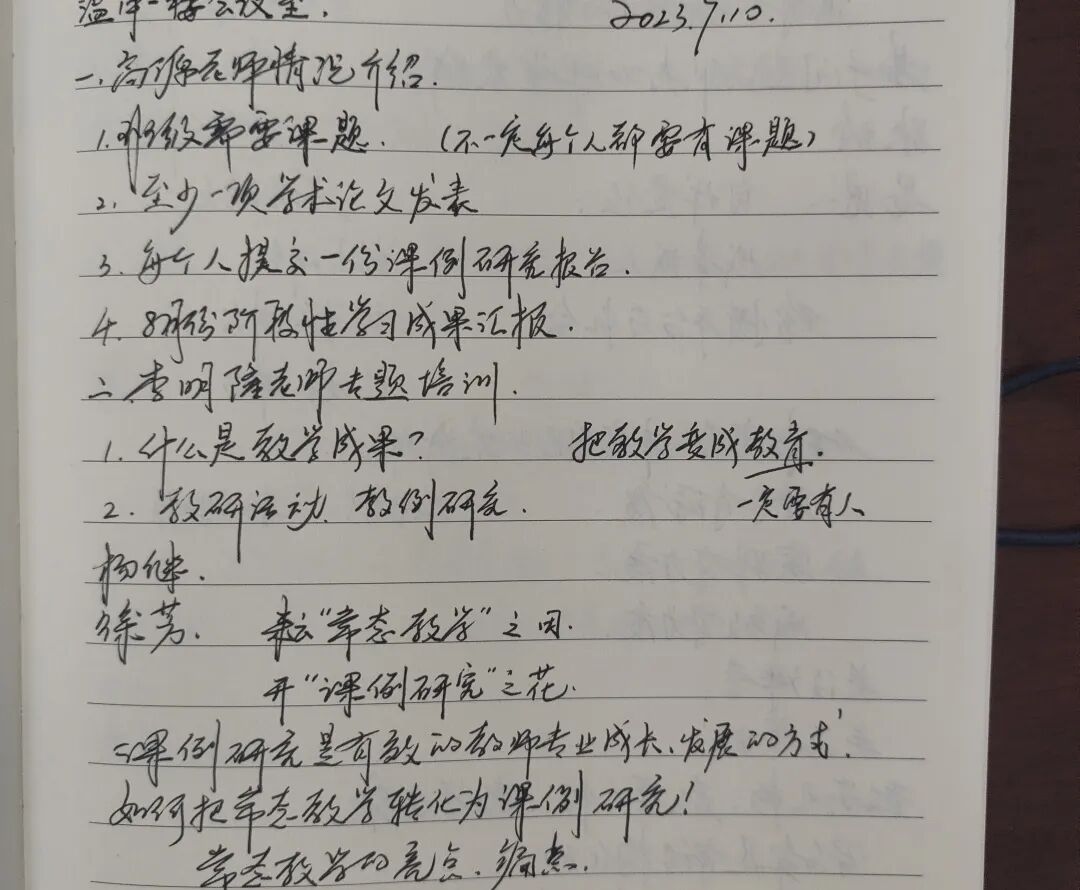 温中一楼会议室. 2023.7.10.
一、高源老师情况介绍.
1. 班级都要课题. (不一定每个人都要有课题)
2. 至少一项学术论文发表
3. 每个人提交一份课例研究报告.
4. 8月份阶段性学习成果汇报.
二、李明隆老师专题培训.
1. 什么是教学成果? 把教学变成教育.
2. 教研活动、教例研究. 一定要有人
杨继.
徐芳. 耘“常态教学”之田.
开“课例研究”之花.
“课例研究是有效的教师专业成长、发展的方式”
如何把常态教学转化为课例研究!
常态教学的亮点、痛点.